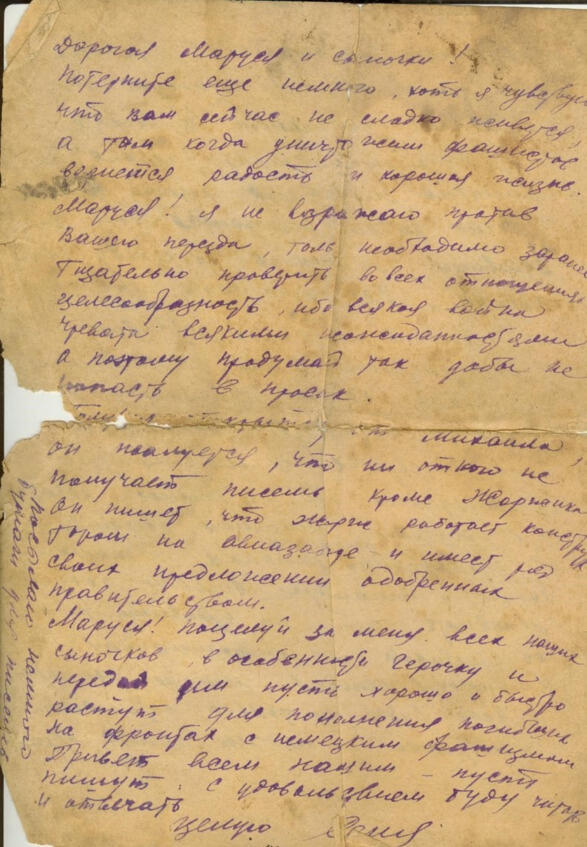 Дорогая Маруся и сыночки!
Потерпите еще немного, хоть я чувствую
что вам сейчас не сладко живется!
а там когда уничтожим фашистов
вернется радость и хорошая жизнь.
Маруся! я не возражаю против
Вашего переезда, толь необходимо заранее
тщательно проверить во всех отношениях
целесообразность, ибо всякая война
чревата всякими неожиданностями
а поэтому продумай так дабы не
попасть в просак.
от Михаила!
он жалуется, что ни от кого не
получает писем кроме Жоржика
Он пишет, что Жорж работает конструк
тором на авиазаводе и имеет ряд
своих предложений одобренных
правительством.
Маруся! поцелуй за меня всех наших
сыночков, в особенности Герочку и
передай им пусть хорошо и быстро
растут для пополнения погибших
на фронтах с немецким фашизмом
Привет всем нашим - пусть
пишут, с удовольствием буду читать
и отвечать
целую
посылаю немного
бумаги для писем